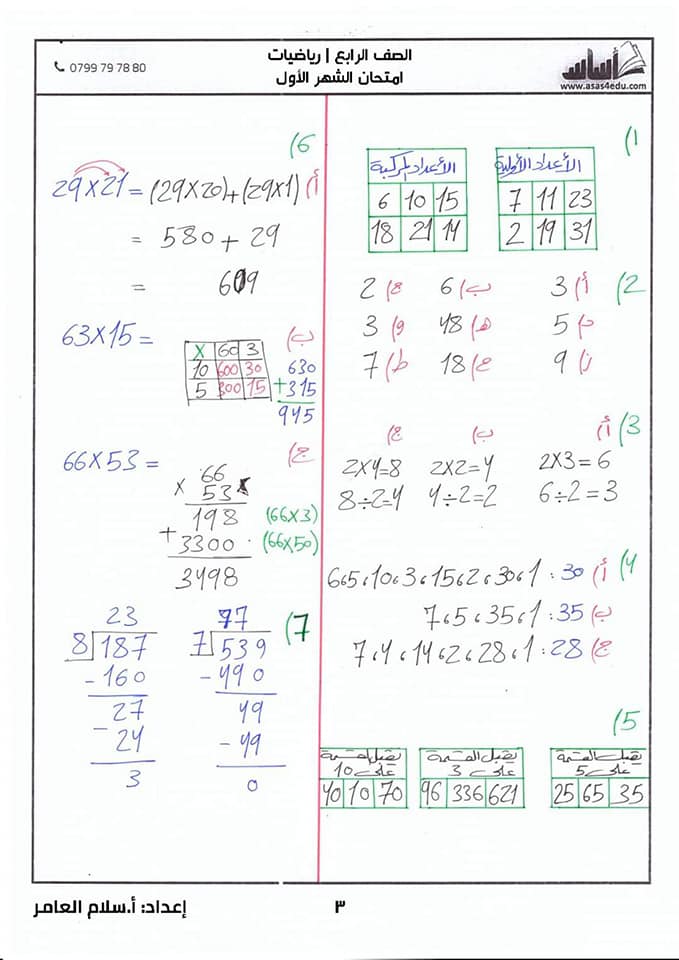 أساس
www.asas4edu.com
الصف الرابع | رياضيات
امتحان الشهر الأول
0799 79 78 80
1)
الأعداد الأولية
7 11 23
2 19 31
الأعداد المركبة
6 10 15
18 21 14
2)
أ) 3 ب) 6 ج) 2
د) 5 هـ) 48 و) 3
ز) 9 ح) 18 ط) 7
3)
أ) ب) ج)
2x3=6 2x2=4 2x4=8
6÷2=3 4÷2=2 8÷2=4
4)
أ) 30: 1، 30، 2، 15، 3، 10، 5، 6
ب) 35: 1، 35، 5، 7
ج) 28: 1، 28، 2، 14، 4، 7
5)
يقبل القسمة على 5
25 65 35
يقبل القسمة على 3
96 336 621
يقبل القسمة على 10
40 10 70
6)
أ) 29x21 = (29x20)+(29x1)
= 580 + 29
= 609
ب) 63x15 =
x 60 3
10 600 30
5 300 15
630
+315
945
ج) 66x53 =
66
x 53
198 (66x3)
+3300 (66x50)
3498
7)
77
7 539
-490
49
-49
0
23
8 187
-160
27
-24
3
إعداد: أ.سلام العامر
٣